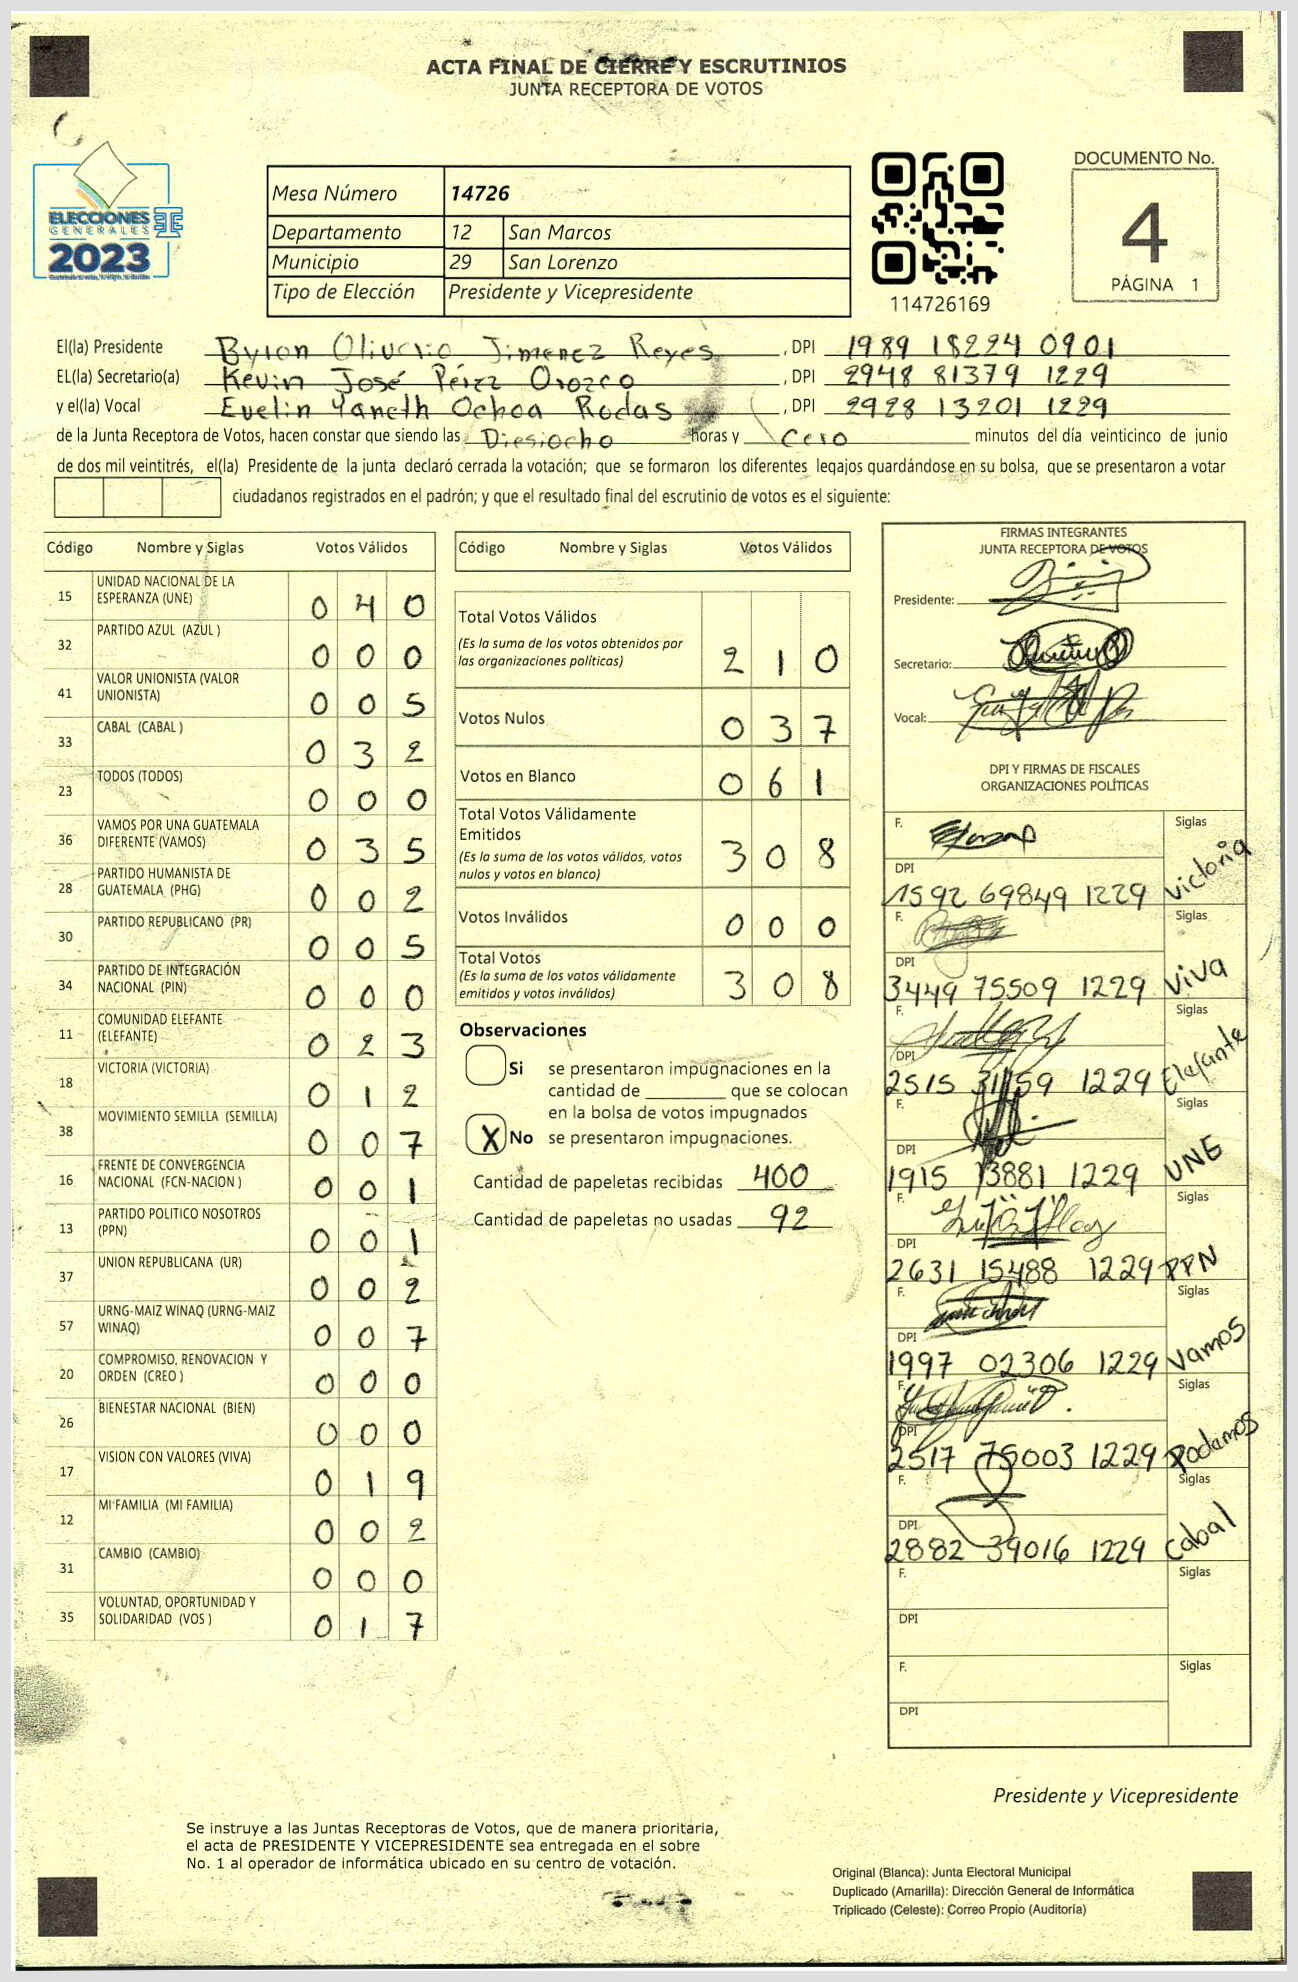 ACTA FINAL DE CIERRE Y ESCRUTINIOS
JUNTA RECEPTORA DE VOTOS
ELECCIONES
GENERALES
2023
Mesa Número 14726
Departamento 12 San Marcos
Municipio 29 San Lorenzo
Tipo de Elección Presidente y Vicepresidente
114726169
DOCUMENTO No.
4
PÁGINA 1
El(la) Presidente Byron Oliverio Jimenez Reyes, DPI 1989 18224 0901
EL(la) Secretario(a) Kevin José Pérez Orozco, DPI 2948 81379 1229
y el(la) Vocal Evelin Yaneth Ochoa Rodas, DPI 2928 13201 1229
de la Junta Receptora de Votos, hacen constar que siendo las Diesiocho horas y Cero minutos del día veinticinco de junio
de dos mil veintitrés, el(la) Presidente de la junta declaró cerrada la votación; que se formaron los diferentes legajos guardándose en su bolsa, que se presentaron a votar
ciudadanos registrados en el padrón; y que el resultado final del escrutinio de votos es el siguiente:
Código Nombre y Siglas Votos Válidos
15 UNIDAD NACIONAL DE LA ESPERANZA (UNE) 0 4 0
32 PARTIDO AZUL (AZUL ) 0 0 0
41 VALOR UNIONISTA (VALOR UNIONISTA) 0 0 5
33 CABAL (CABAL ) 0 3 2
23 TODOS (TODOS) 0 0 0
36 VAMOS POR UNA GUATEMALA DIFERENTE (VAMOS) 0 3 5
28 PARTIDO HUMANISTA DE GUATEMALA (PHG) 0 0 2
30 PARTIDO REPUBLICANO (PR) 0 0 5
34 PARTIDO DE INTEGRACIÓN NACIONAL (PIN) 0 0 0
11 COMUNIDAD ELEFANTE (ELEFANTE) 0 2 3
18 VICTORIA (VICTORIA) 0 1 2
38 MOVIMIENTO SEMILLA (SEMILLA) 0 0 7
16 FRENTE DE CONVERGENCIA NACIONAL (FCN-NACION ) 0 0 1
13 PARTIDO POLITICO NOSOTROS (PPN) 0 0 1
37 UNION REPUBLICANA (UR) 0 0 2
57 URNG-MAIZ WINAQ (URNG-MAIZ WINAQ) 0 0 7
20 COMPROMISO, RENOVACION Y ORDEN (CREO ) 0 0 0
26 BIENESTAR NACIONAL (BIEN) 0 0 0
17 VISION CON VALORES (VIVA) 0 1 9
12 MI FAMILIA (MI FAMILIA) 0 0 2
31 CAMBIO (CAMBIO) 0 0 0
35 VOLUNTAD, OPORTUNIDAD Y SOLIDARIDAD (VOS ) 0 1 7
Código Nombre y Siglas Votos Válidos
Total Votos Válidos
(Es la suma de los votos obtenidos por
las organizaciones políticas) 2 1 0
Votos Nulos 0 3 7
Votos en Blanco 0 6 1
Total Votos Válidamente
Emitidos
(Es la suma de los votos válidos, votos
nulos y votos en blanco) 3 0 8
Votos Inválidos 0 0 0
Total Votos
(Es la suma de los votos válidamente
emitidos y votos inválidos) 3 0 8
Observaciones
Si se presentaron impugnaciones en la
cantidad de ________ que se colocan
en la bolsa de votos impugnados
X No se presentaron impugnaciones.
Cantidad de papeletas recibidas 400
Cantidad de papeletas no usadas 92
FIRMAS INTEGRANTES
JUNTA RECEPTORA DE VOTOS
Presidente:
Secretario:
Vocal:
DPI Y FIRMAS DE FISCALES
ORGANIZACIONES POLÍTICAS
F. Siglas
DPI
1592 69849 1229 Victoria
F. Siglas
DPI
3449 75509 1229 Viva
F. Siglas
DPI
2515 1229 Elefante
F. Siglas
DPI
1915 13881 1229 UNE
F. Siglas
DPI
2631 15488 1229 PPN
F. Siglas
DPI
1997 02306 1229 Vamos
F. Siglas
DPI
2517 75003 1229 Podamos
F. Siglas
DPI
2882 39016 1229 Cabal
F. Siglas
DPI
F. Siglas
DPI
Presidente y Vicepresidente
Se instruye a las Juntas Receptoras de Votos, que de manera prioritaria,
el acta de PRESIDENTE Y VICEPRESIDENTE sea entregada en el sobre
No. 1 al operador de informática ubicado en su centro de votación.
Original (Blanca): Junta Electoral Municipal
Duplicado (Amarilla): Dirección General de Informática
Triplicado (Celeste): Correo Propio (Auditoría)